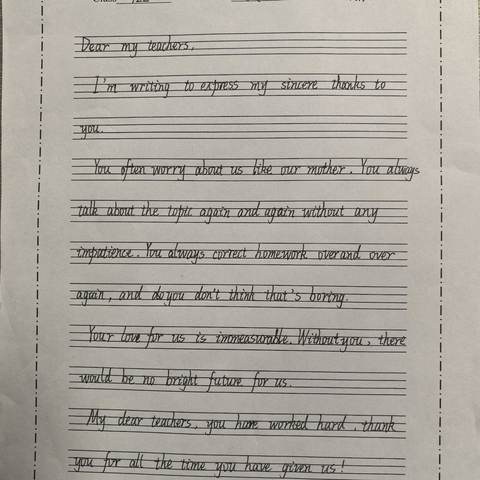 Class
Dear my teachers,
I'm writing to express my sincere thanks to
you.
You often worry about us like our mother. You always
talk about the topic again and again without any
impatience. You always correct homework over and over
again, and do you don't think that's boring.
Your love for us is immeasurable. Without you, there
would be no bright future for us.
My dear teachers, you have worked hard, thank
you for all the time you have given us!